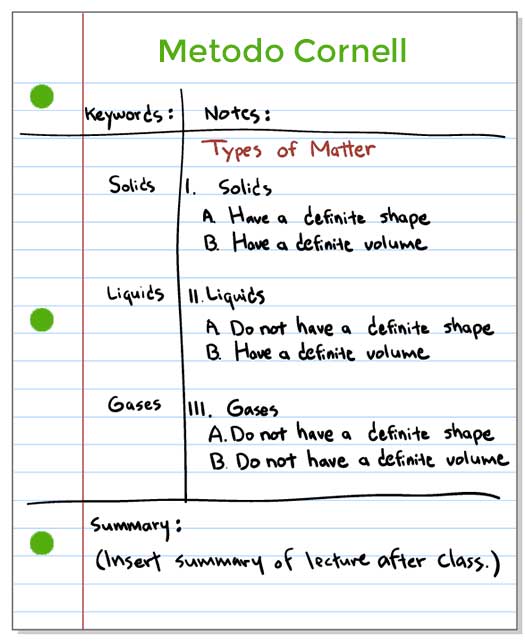 Metodo Cornell
Keywords: Notes:
Types of Matter
Solids I. Solids
A. Have a definite shape
B. Have a definite volume
Liquids II. Liquids
A. Do not have a definite shape
B. Have a definite volume
Gases III. Gases
A. Do not have a definite shape
B. Do not have a definite volume
Summary:
(Insert summary of lecture after class.)